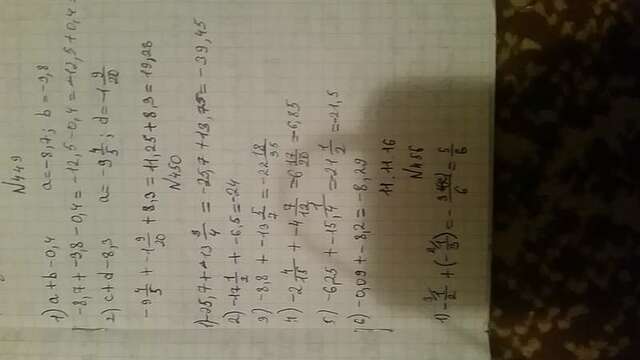 N449
1) a + b - 0,4 a = -8,7; b = -9,8
-8,7 + -9,8 - 0,4 = -12,5 - 0,4 = -12,5 + 0,4 =
2) c + d - 8,3 a = -9 4/5; d = -1 9/20
-9 4/5 + -1 9/20 + 8,3 = 11,25 + 8,3 = 19,28
N450
1) -25,7 + -13 3/4 = -25,7 + 13,75 = -39,45
2) -17 1/2 + -6,5 = -24
3) -8,8 + -13 5/7 = -22 18/35
4) -2 4/15 + -4 7/12 = -6 17/20 = -6,85
5) -6,25 + -15,1/4 = -21 1/2 = -21,5
6) -0,09 + -8,2 = -8,29
11.11.16
N456
1) -1/2 + (-1/3) = - /6 = 5/6